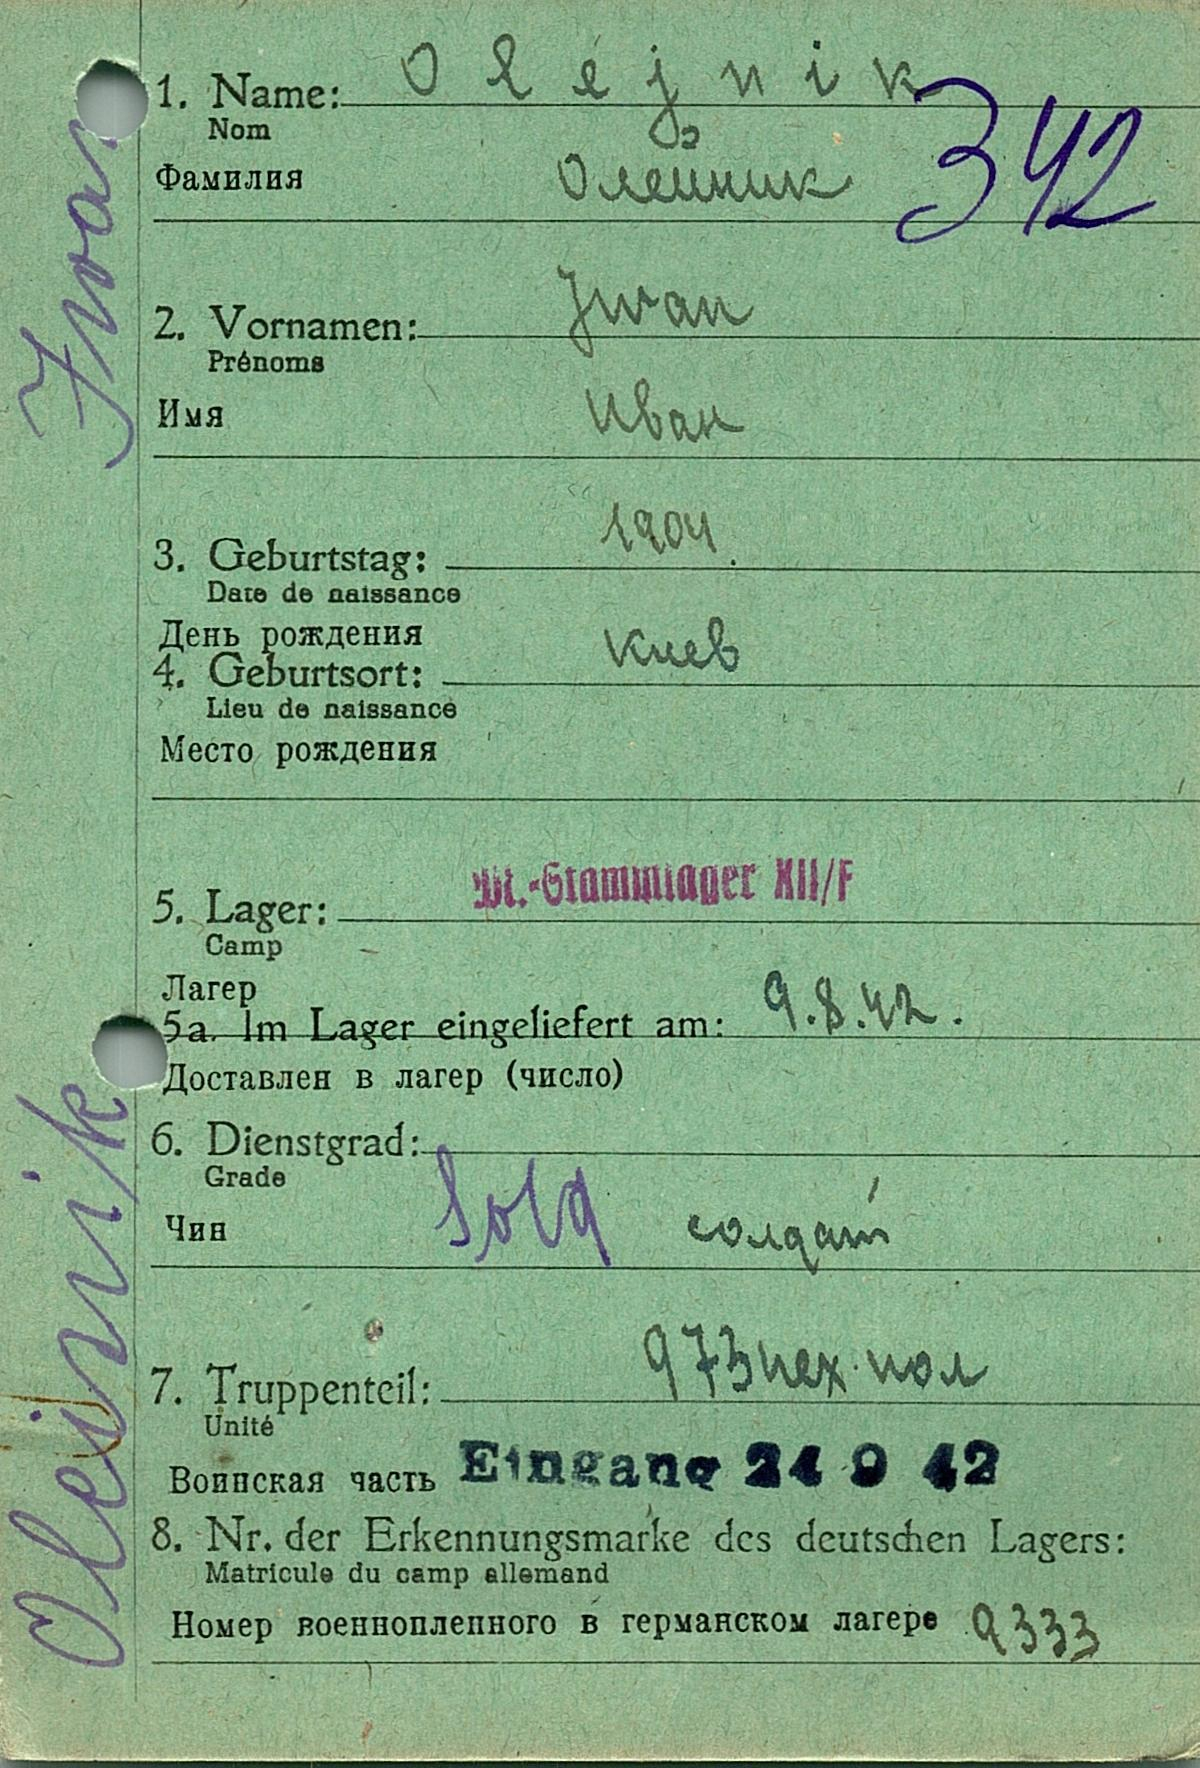 1. Name: Olejnik
Nom
Фамилия Олейник
342
2. Vornamen: Jwan
Prénoms
Имя Иван
3. Geburtstag: 1904.
Date de naissance
День рождения Киев
4. Geburtsort:
Lieu de naissance
Место рождения
5. Lager: M.-Stammlager XII/F
Camp
Лагер
5a. Im Lager eingeliefert am: 9.8.42.
Доставлен в лагер (число)
6. Dienstgrad:
Grade
Чин Sold солдат
7. Truppenteil: 973 пех. пол
Unité
Воинская часть Eingang 24 9 42
8. Nr. der Erkennungsmarke des deutschen Lagers:
Matricule du camp allemand
Номер военнопленного в германском лагере 9333
Oleinik Iwan